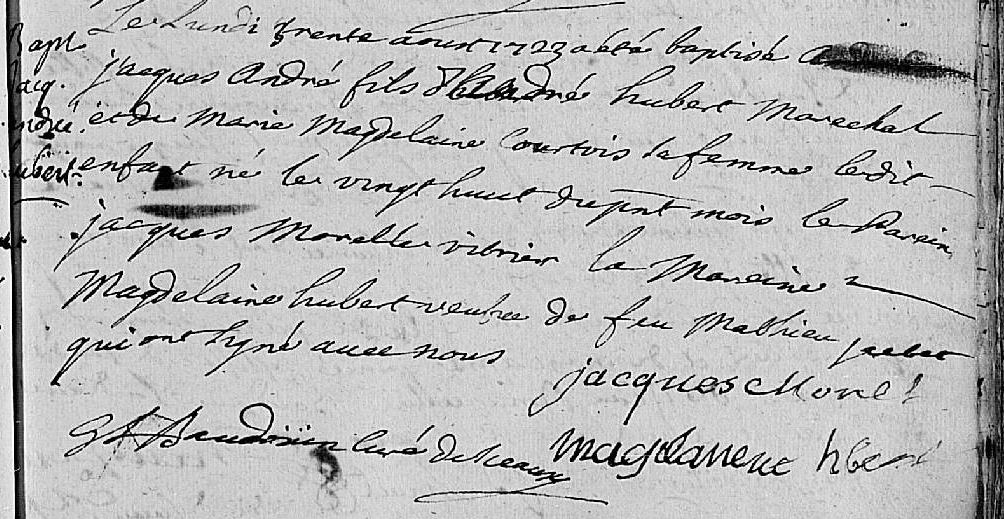 Bapt.
Jacq.
André
hubert
Le Lundi trente aoust 1723 a été baptisé
jacques André fils d'André hubert Marechal
et de Marie Magdelaine Courtois sa femme ledit
enfant né le vingt huit du pnt mois le Parein
jacques Morelle vitrier la Mareine
Magdelaine hubert veufve de feu Mathieu
qui ont signé avec nous
jacques Morel
Baudoüin curé de Sceaux
magdaleine